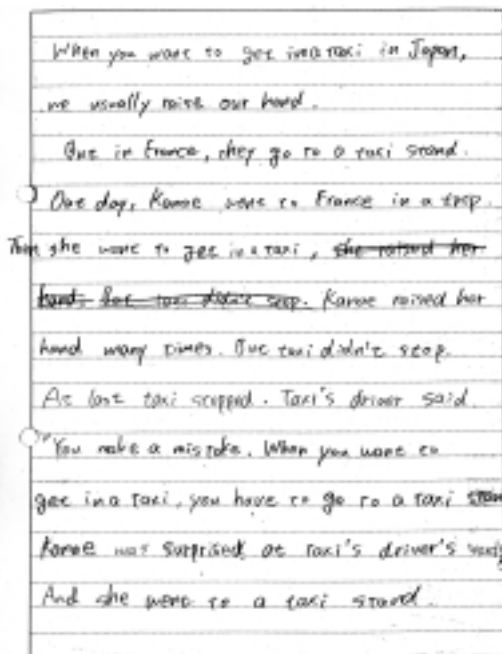 When you want to get in a taxi in Japan,
we usually raise our hand.
But in France, they go to a taxi stand.
One day, Kanae went to France in a trip.
Then she want to get in a taxi, she raised her
hand. But taxi didn't stop. Kanae raised her
hand many times. But taxi didn't stop.
At last taxi stopped. Taxi's driver said.
"You make a mistake. When you want to
get in a taxi, you have to go to a taxi
Kanae was surprised at taxi's driver's
And she went to a taxi stand.